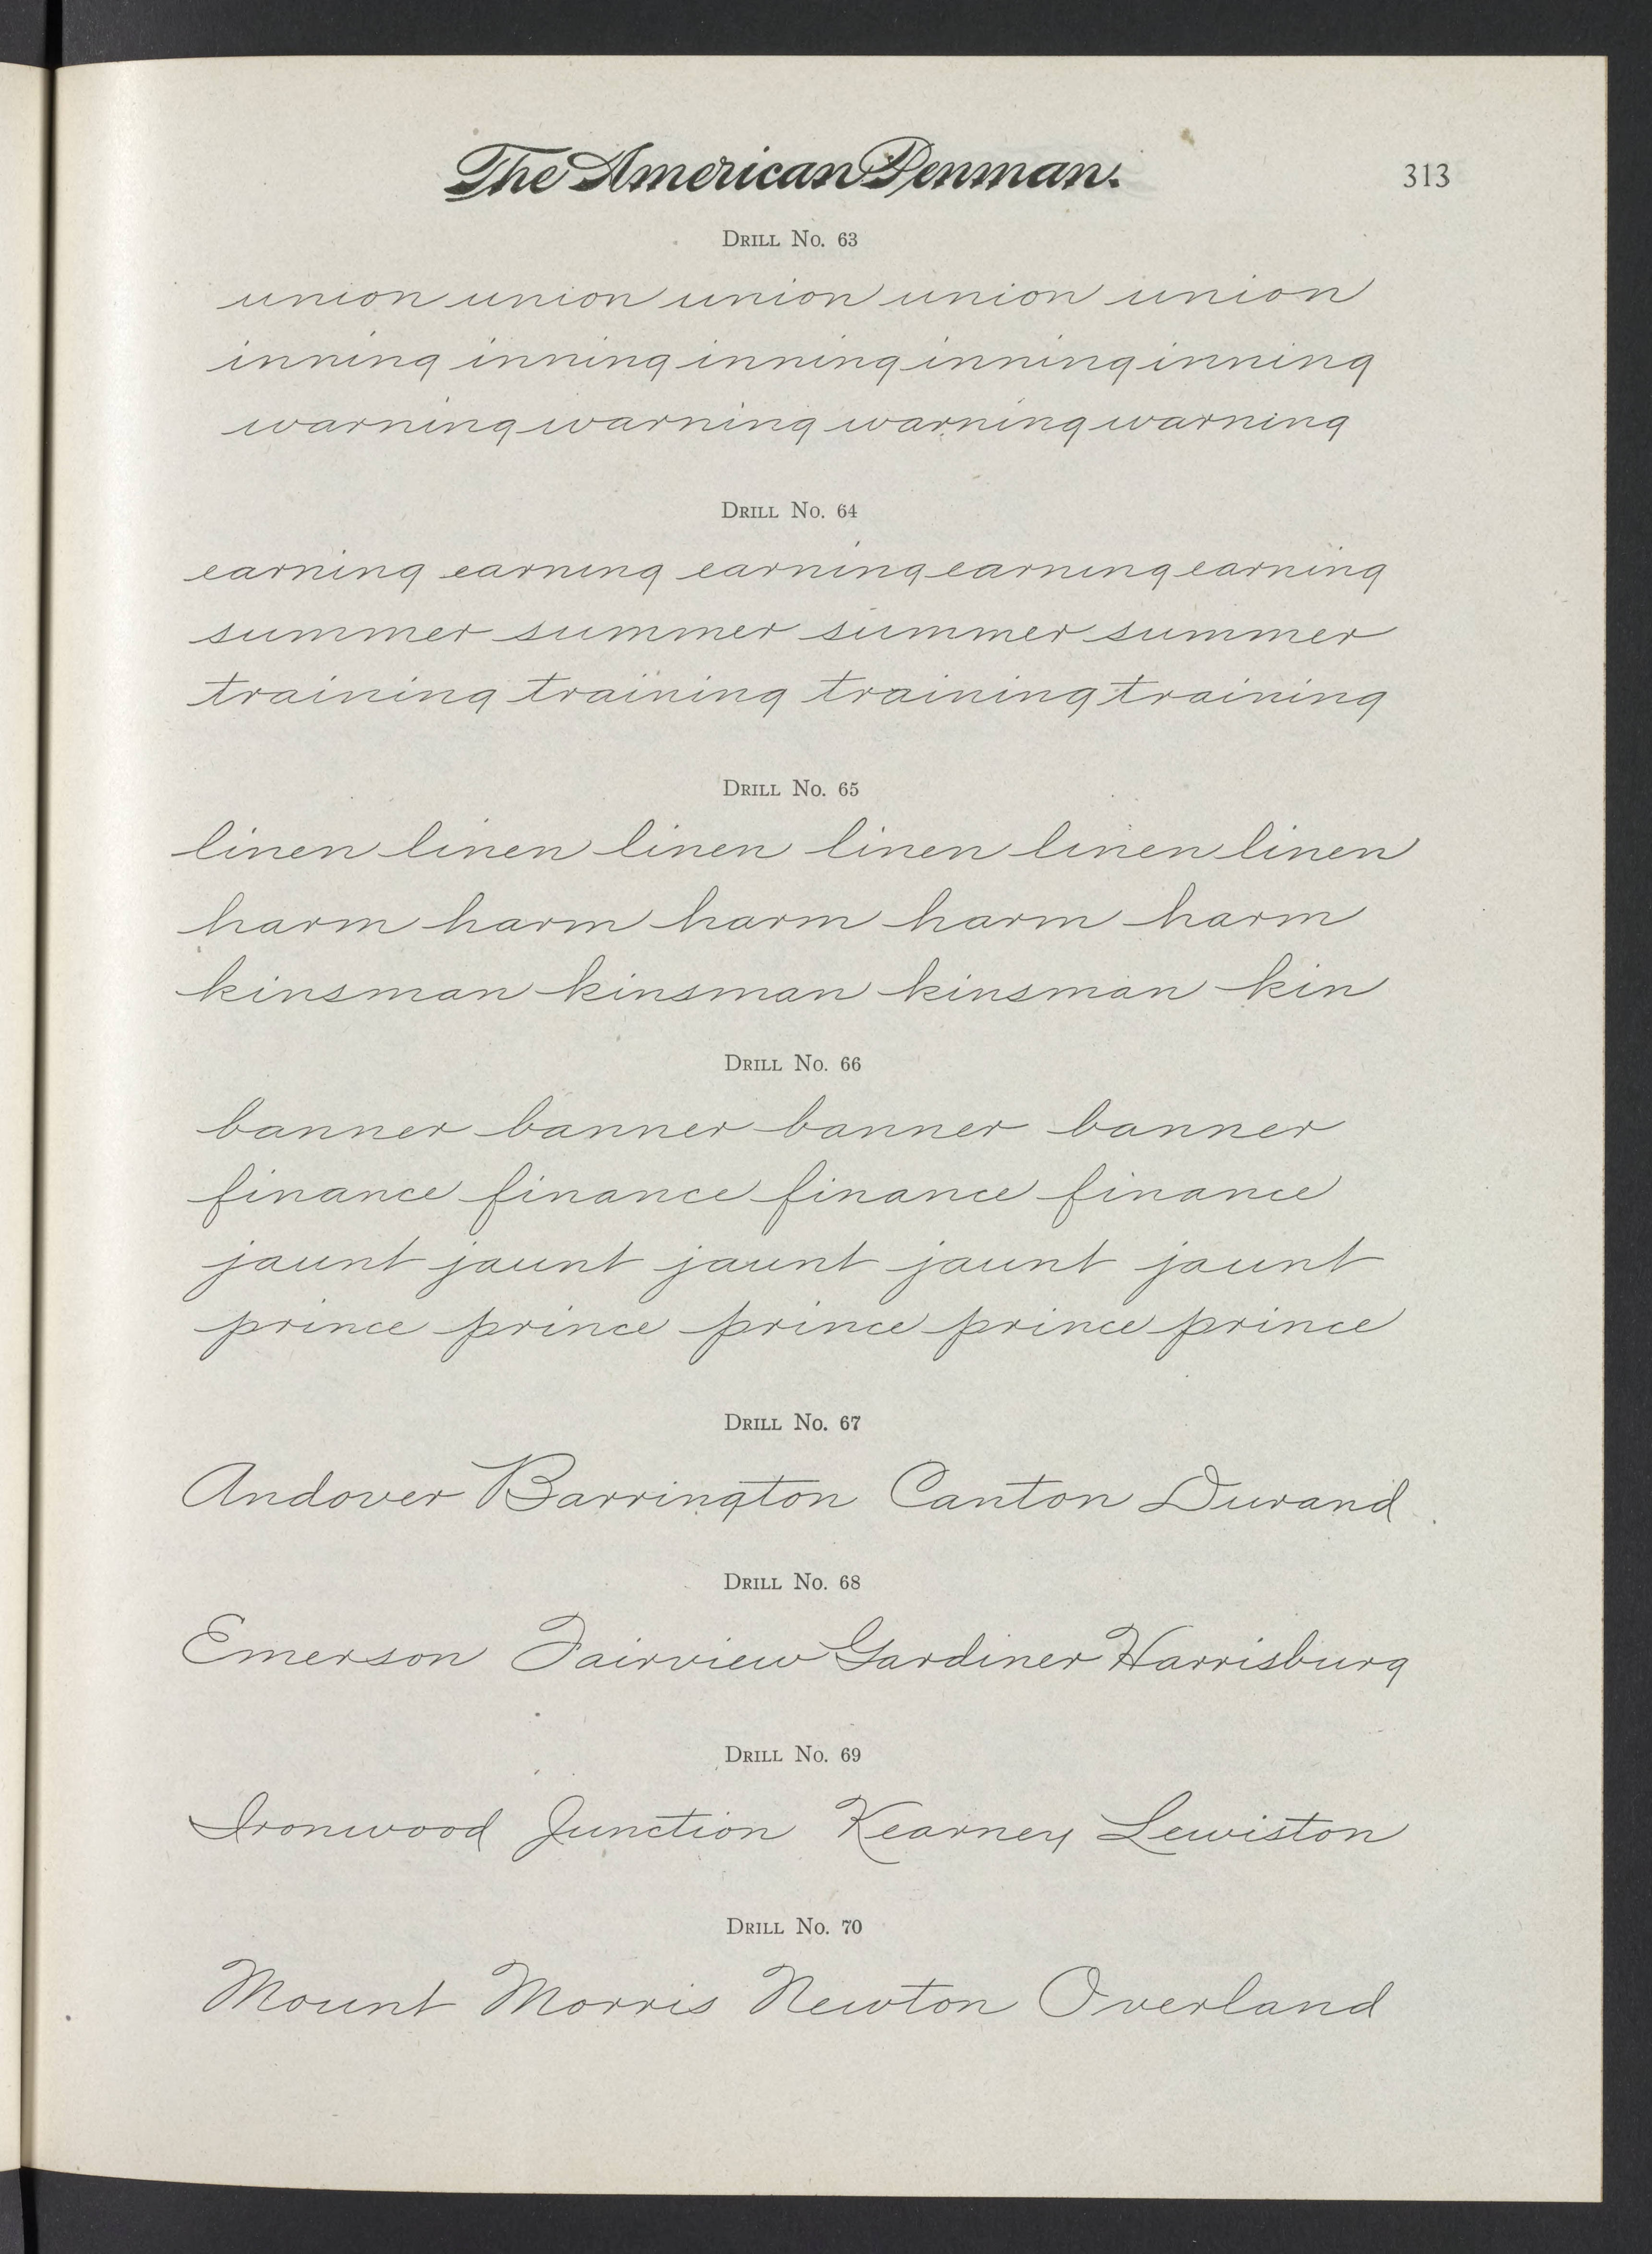 The American Penman.
313
Drill No. 63
union union union union union
inning inning inning inning inning
warning warning warning warning
Drill No. 64
earning earning earning earning earning
summer summer summer summer
training training training training
Drill No. 65
linen linen linen linen linen linen
harm harm harm harm harm
kinsman kinsman kinsman kin
Drill No. 66
banner banner banner banner
finance finance finance finance
jaunt jaunt jaunt jaunt jaunt
prince prince prince prince prince
Drill No. 67
Andover Barrington Canton Durand
Drill No. 68
Emerson Fairview Gardiner Harrisburg
Drill No. 69
Ironwood Junction Kearney Lewiston
Drill No. 70
Mount Morris Newton Overland